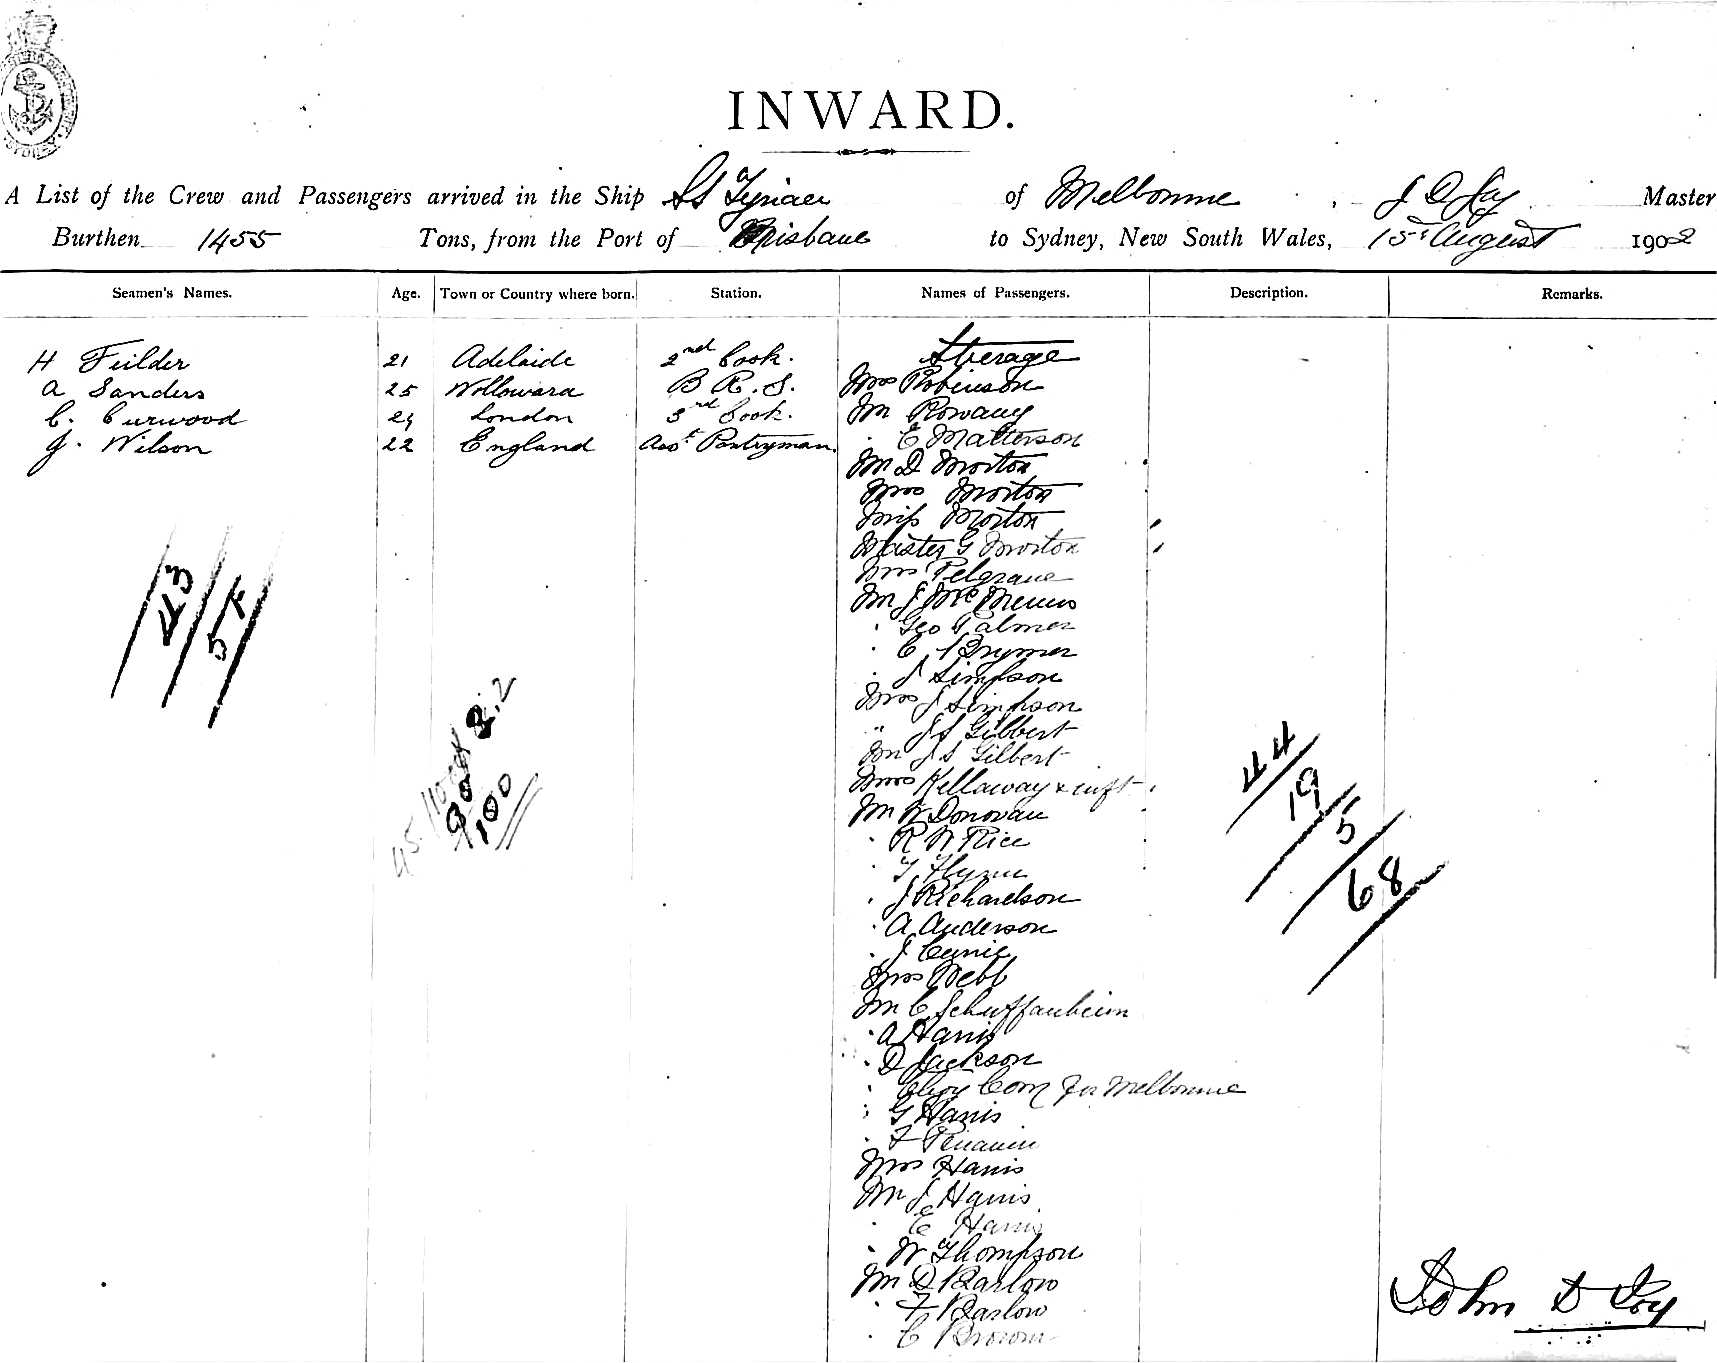 INWARD.
A List of the Crew and Passengers arrived in the Ship SS Tyrian of Melbourne, J D Joy Master
Burthen 1455 Tons, from the Port of Brisbane to Sydney, New South Wales, 15th August 1902
Seamen's Names. Age. Town or Country where born. Station. Names of Passengers. Description. Remarks.
Steerage
H Feilder 21 Adelaide 2nd Cook.
A Sanders 25 B R. S. Mrs Robinson
C. Curwood London 3rd Cook. Mr
J. Wilson 22 England Asst Pantryman. " E Matterson
Mr D Morton
Mrs Morton
Miss Morton
Master G Morton
Mrs Pelgrave
Mr J
" Geo Palmer
" C Brymer
" J Simpson
Mrs J Simpson
" J S Gilbert
Mr J S Gilbert
Mrs Kellaway & inft
Mr W Donovan
" R W Rice
" T Flynn
" J Richardson
" A Anderson
" J
Mrs Webb
Mr C
" A Harris
" D Jackson
" Com for Melbourne
" G Harris
" F
Mrs Harris
Mr J Harris
" E Harris
" W Thompson
Mr D Barlow
" F Barlow
" C Brown
43
54
100
44
19
5
68
John D Joy